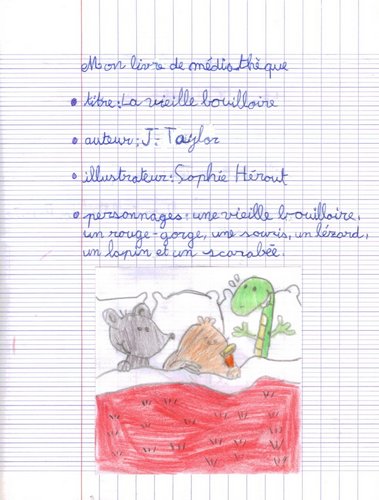 Mon livre de médiathèque
• titre : La vieille bouilloire
• auteur : J. Taylor
• illustrateur : Sophie Hérout
• personnages : une vieille bouilloire,
un rouge-gorge, une souris, un lézard,
un lapin et un scarabée.